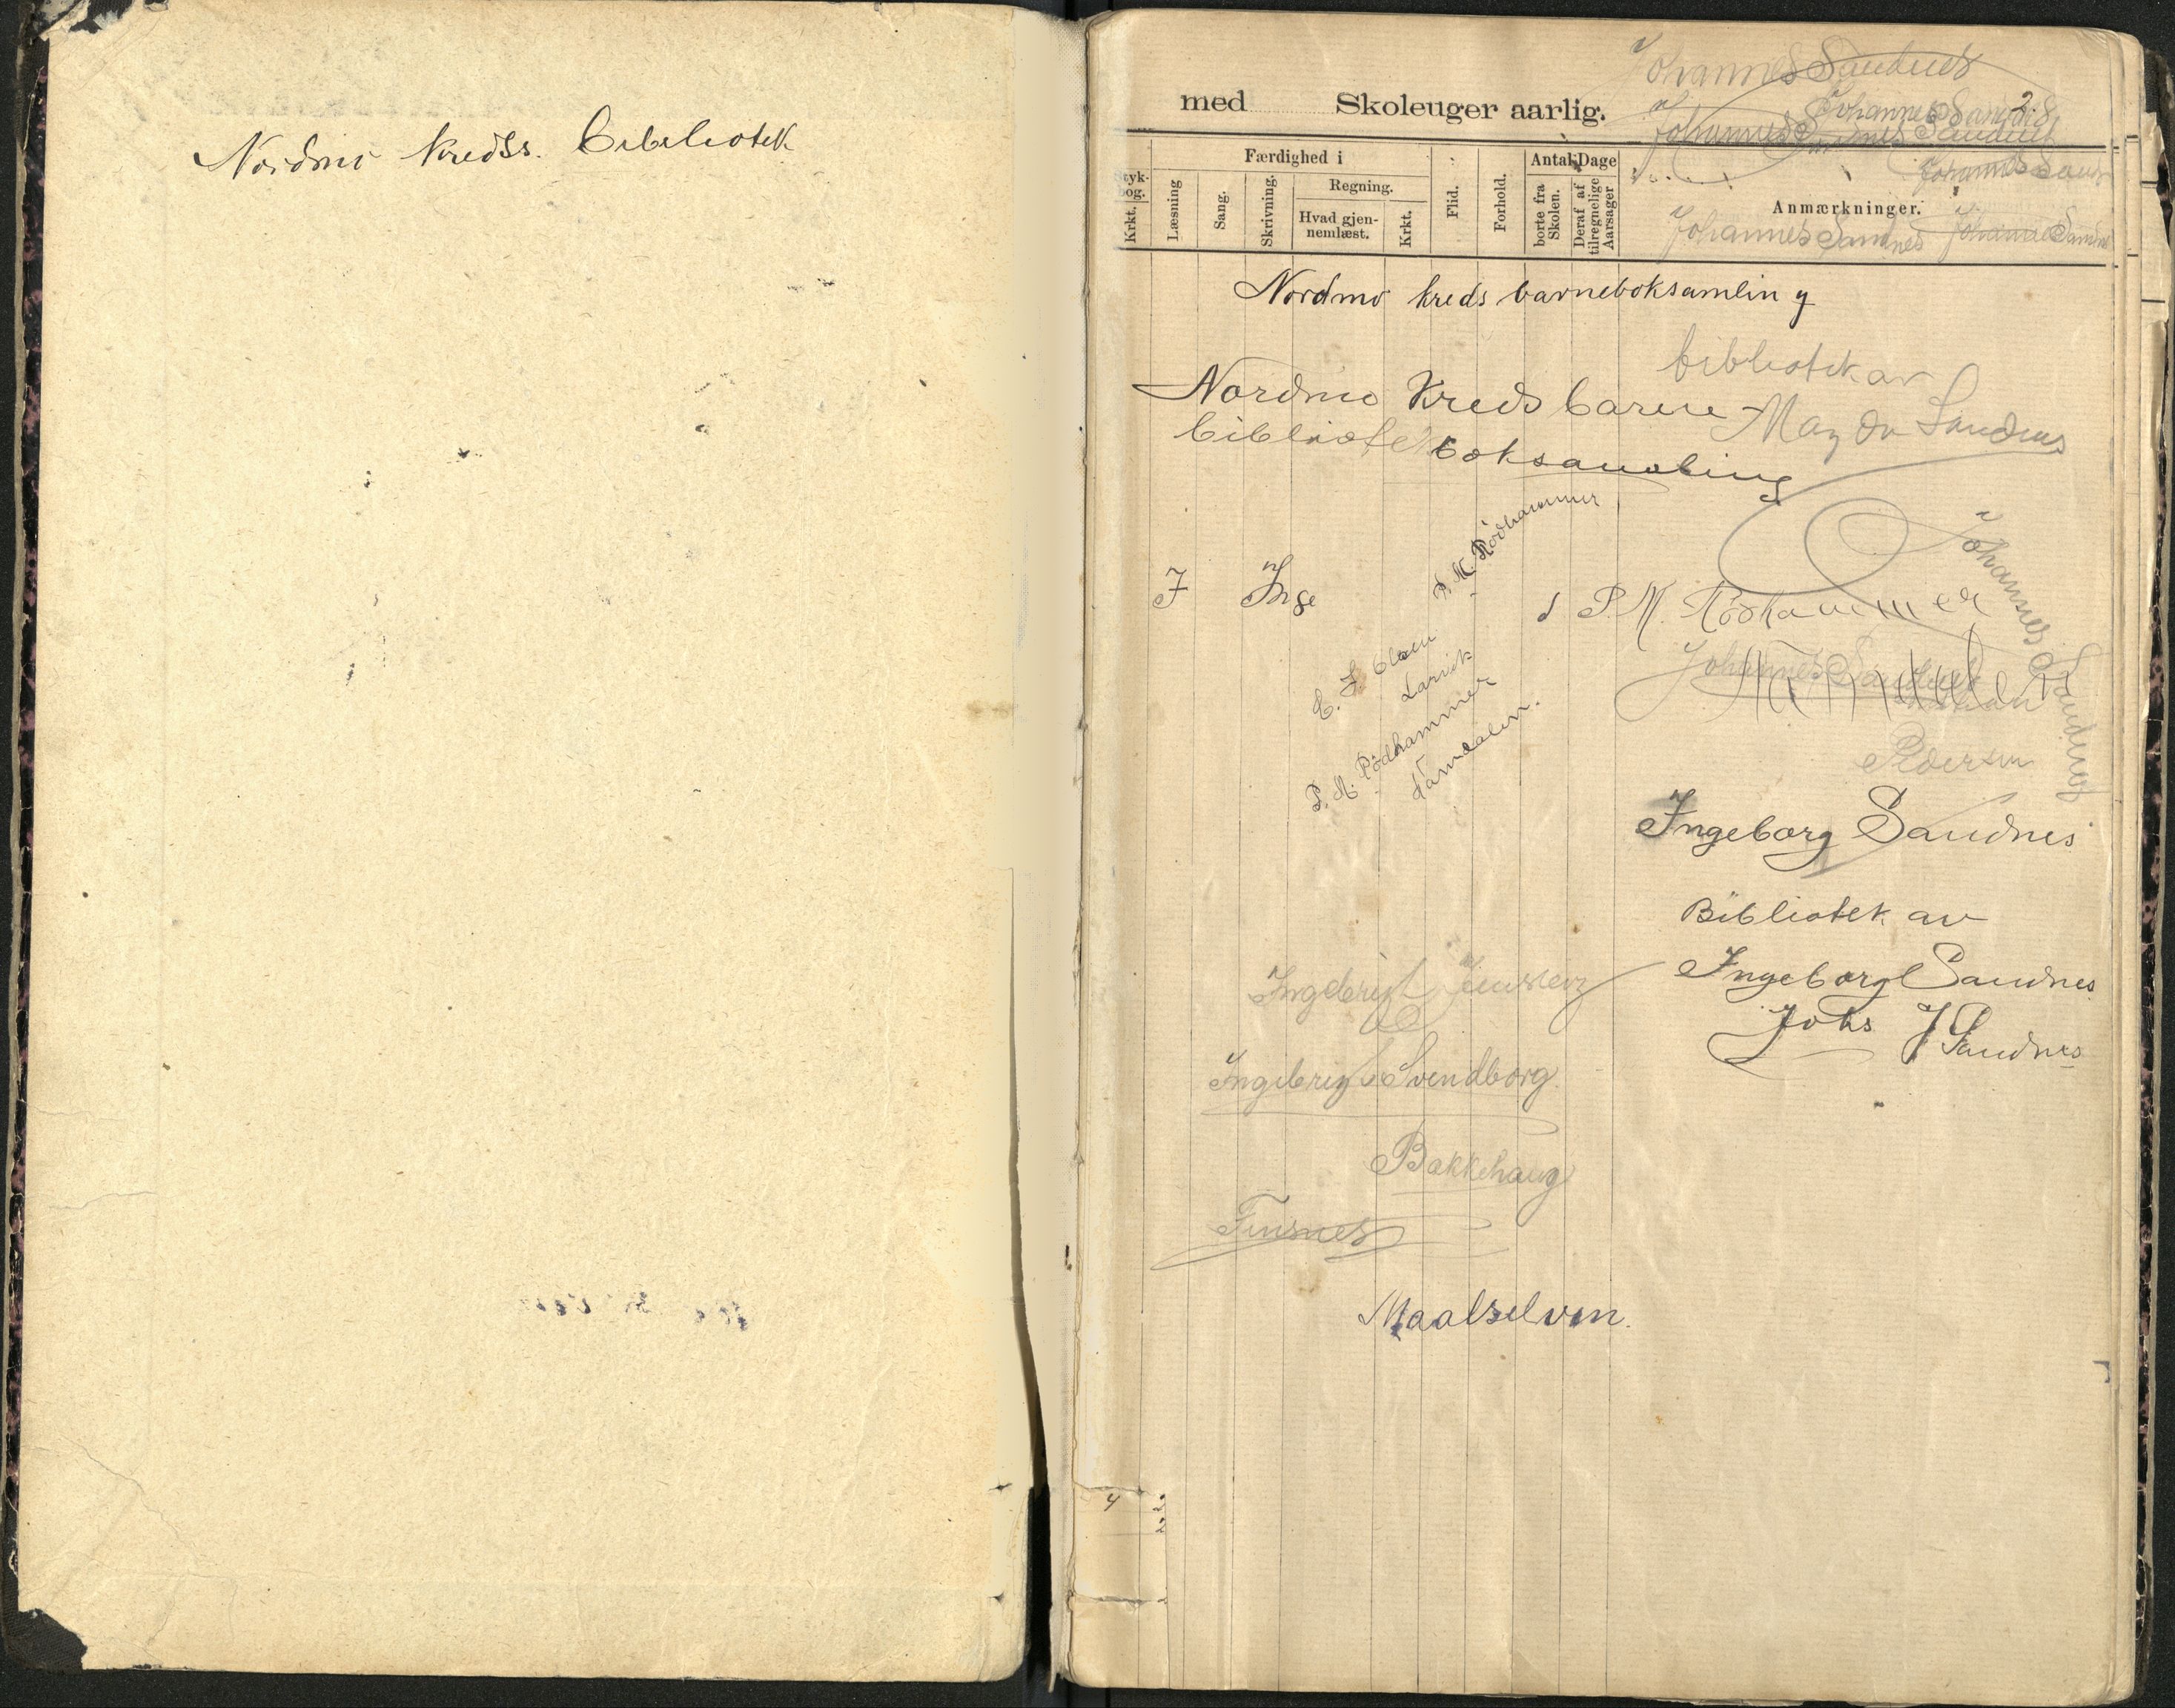 Nordmo Kredss. bibliotek
Johannes Sandnes
med Skoleuger aarlig.
Johannes Sandnes
Johannes Sandnes
Johannes Sand
Færdighed i
Antal Dage
Krkt.
Læsning
Sang.
Skrivning.
Regning.
Hvad gjen-
nemlæst.
Krkt.
Flid.
Forhold.
borte fra
Skolen.
Deraf af
tilregnelige
Aarsager
Anmærkninger.
Johannes Sandnes Johannes Sandne
Nordmo kreds barneboksamling
bibliotek av
Nordmo Kreds barne Magda Sandnes
bibliotek boksamling
P. M. Rödhammer
Johannes Sandnes
J Inge
P. M. Rödhammer
E. J. Olsen
Larvik
P. M. Rödhammer
Johannes Sandnes
Pedersen
Ingeborg Sandnes
Bibliotek av
Ingeborg Sandnes
Johs J Sandnes
Ingebrigt Jenssen
Ingebrigt Svendborg
Bakkehaug
Finsnes
Maalselven.
4